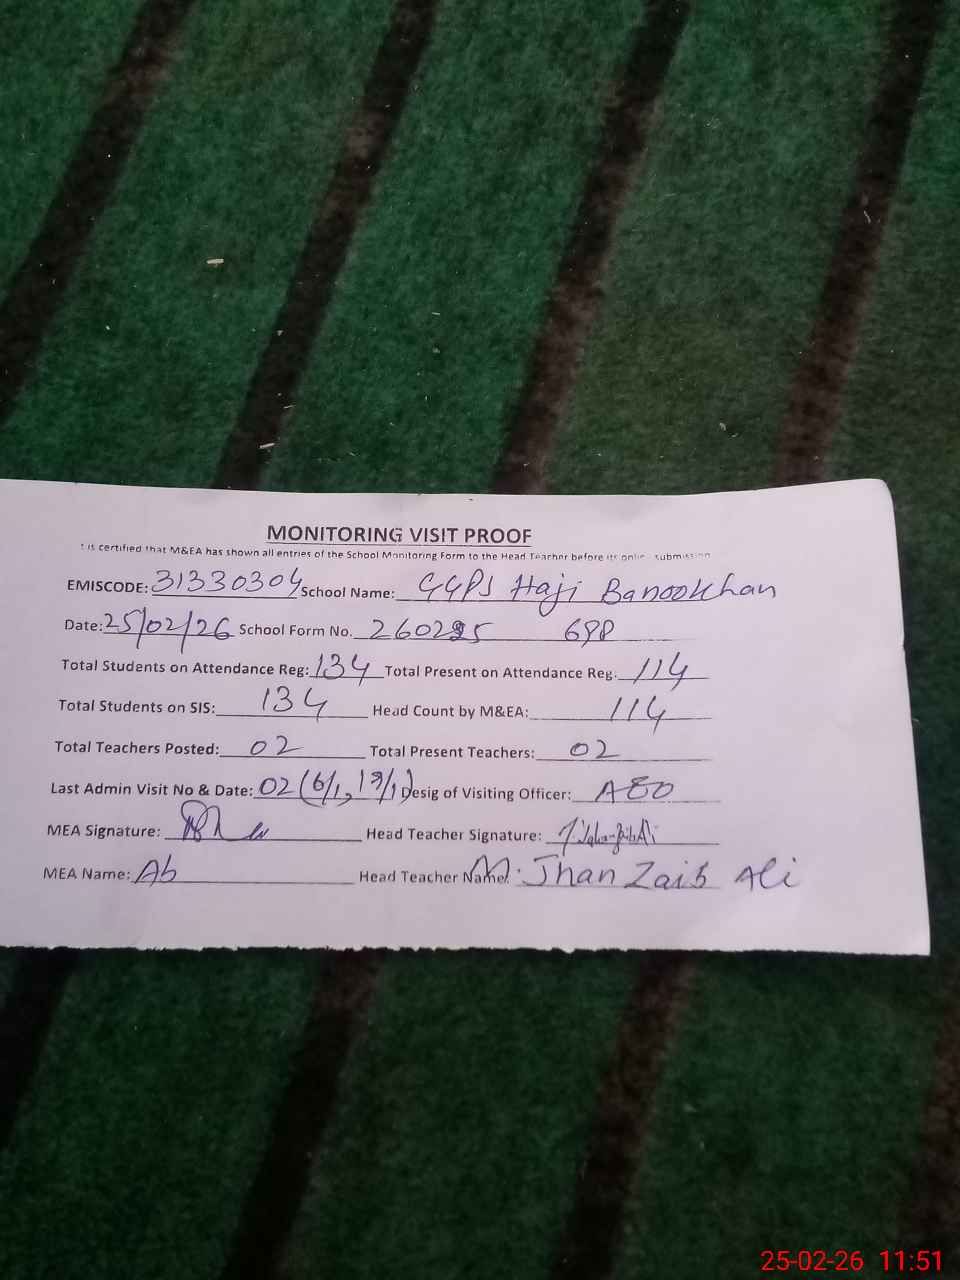 MONITORING VISIT PROOF
It is certified that M&EA has shown all entries of the School Monitoring Form to the Head Teacher before its online submission
EMISCODE: 31330304 School Name: GGPS Haji Banoo Khan
Date: 25/02/26 School Form No. 260225 698
Total Students on Attendance Reg: 134 Total Present on Attendance Reg: 114
Total Students on SIS: 134 Head Count by M&EA: 114
Total Teachers Posted: 02 Total Present Teachers: 02
Last Admin Visit No & Date: 02 (6/1, 19/1) Desig of Visiting Officer: AEO
MEA Signature: Head Teacher Signature:
MEA Name: Ab Head Teacher Name: M. Jhan Zaib Ali
25-02-26 11:51